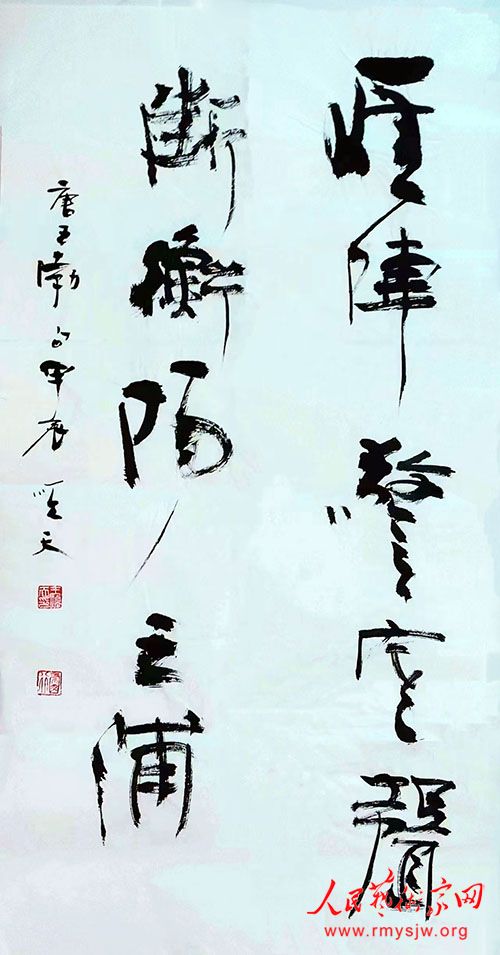 雁陣驚寒聲
斷衡陽之浦
唐王勃句甲辰
人民艺术家网
www.rmysjw.org